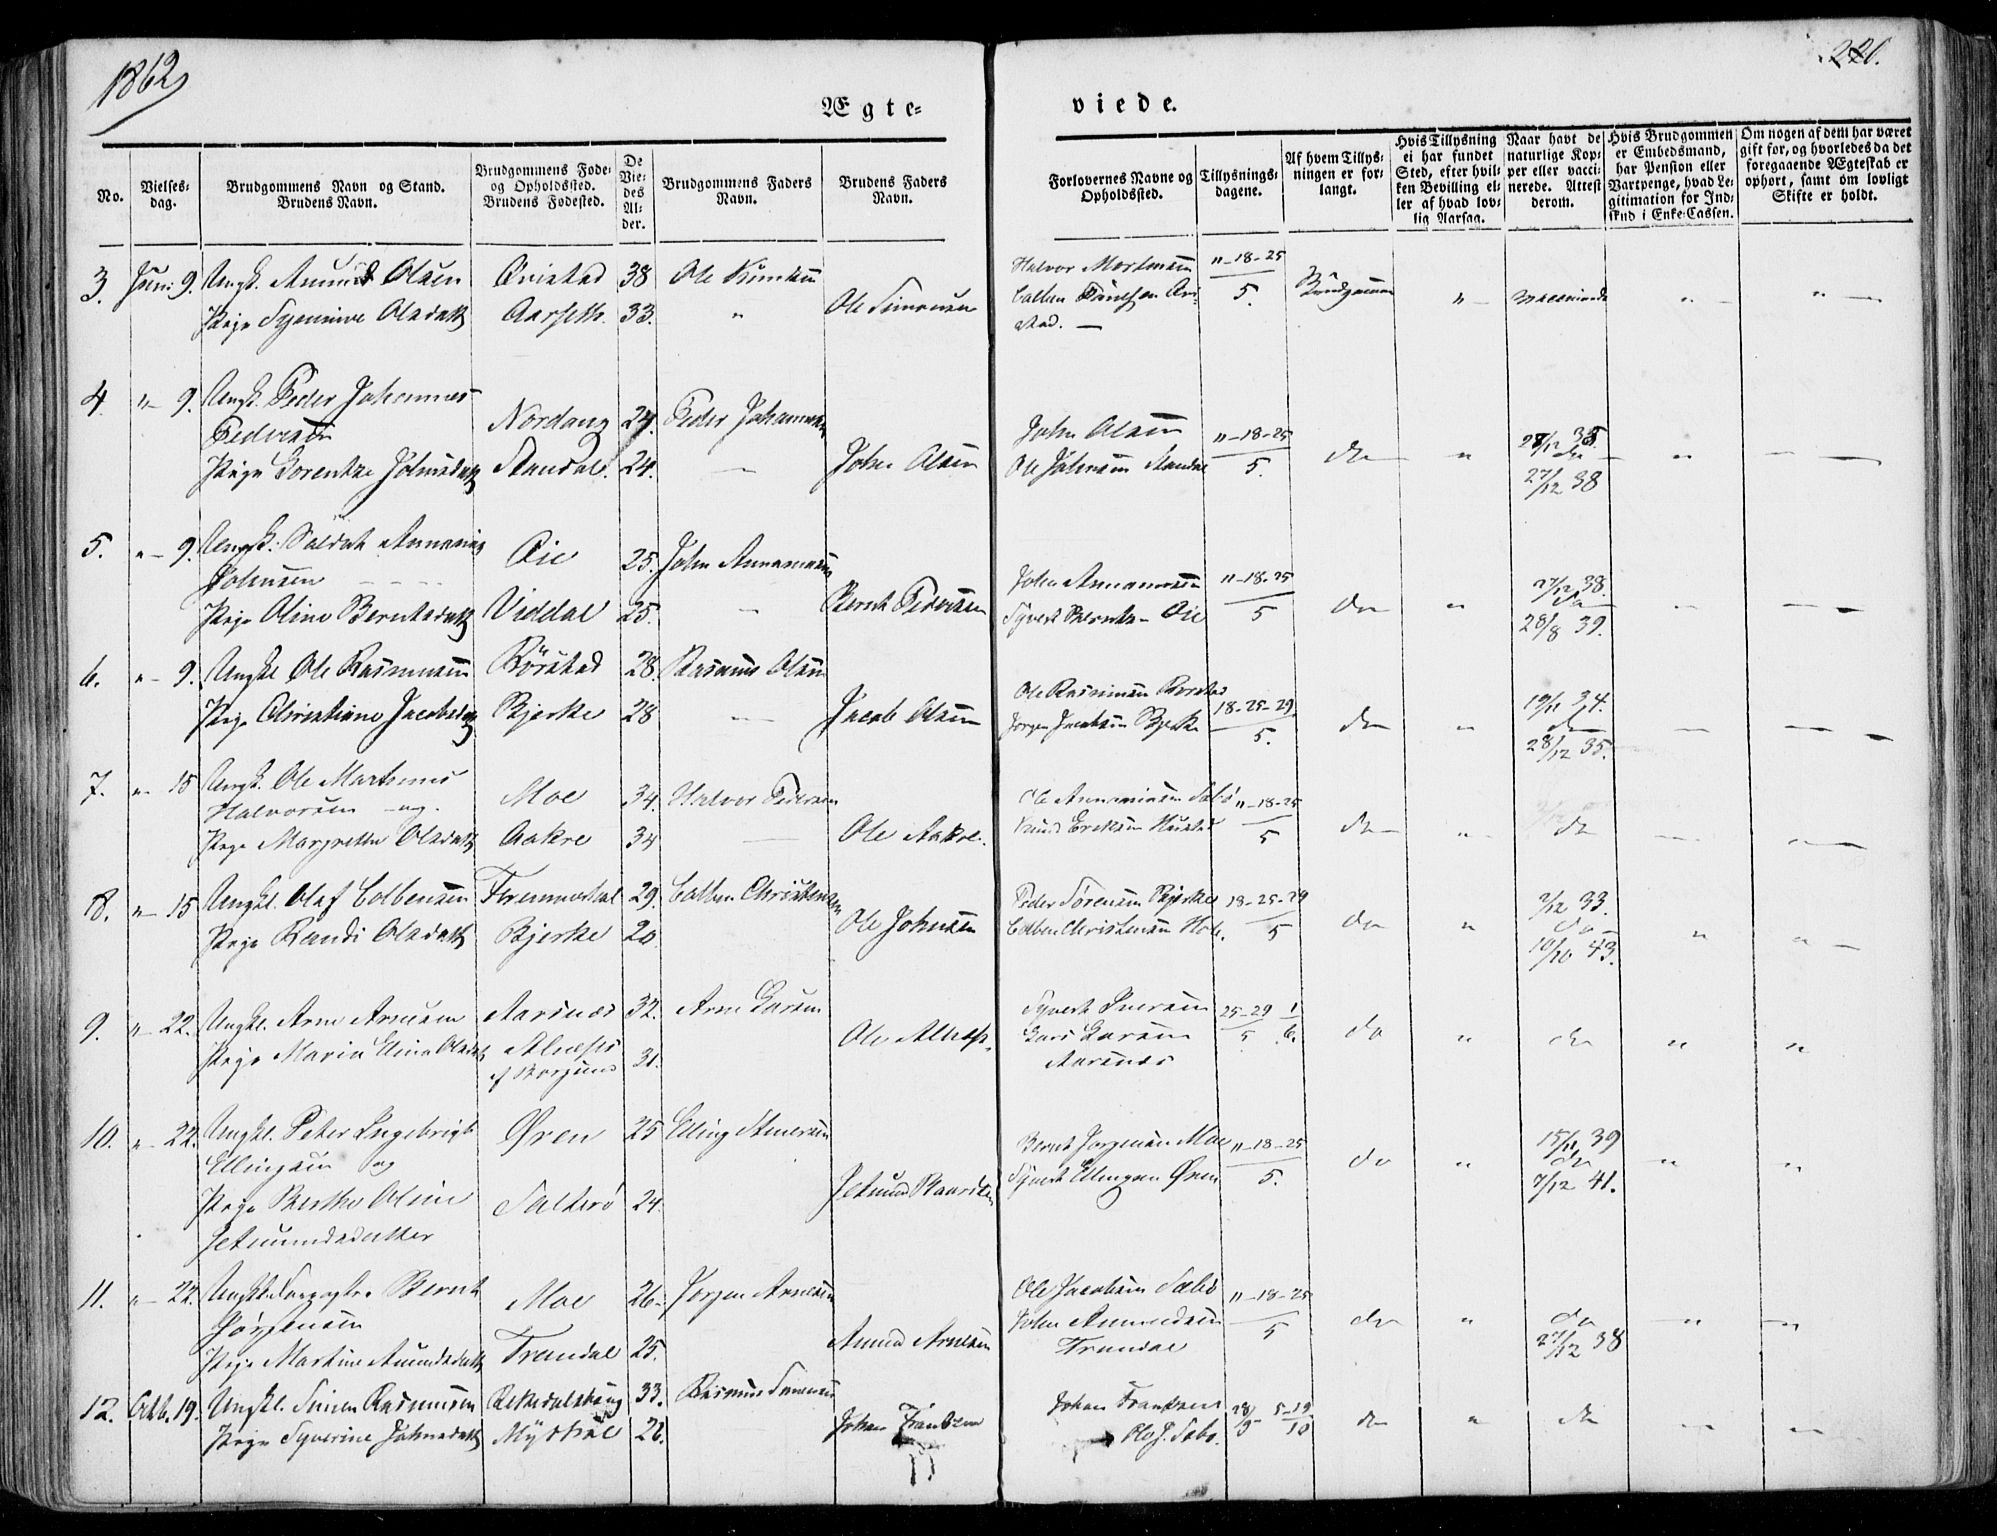 1862
220.
Ægte-
viede.
No.
Vielses-
dag.
Brudgommens Navn og Stand.
Brudens Navn.
Brudgommens Føde-
og Opholdssted.
Brudens Fødested.
De
Vie-
des
Al-
der.
Brudgommens Faders
Navn.
Brudens Faders
Navn.
Forlovernes Navne og
Opholdssted.
Tillysnings-
dagene.
Af hvem Tillys-
ningen er for-
langt.
Hvis Tillysning
ei har fundet
Sted, efter hvil-
ken Bevilling el-
ler af hvad lov-
lig Aarsag.
Naar havt de
naturlige Kop-
per eller vacci-
nerede. Attest
derom.
Hvis Brudgommen
er Embedsmand,
har Pension eller
Vartpenge, hvad Le-
gitimation for Ind-
skud i Enke-Cassen.
Om nogen af dem har været
gift før, og hvorledes da det
foregaaende Ægteskab er
ophørt, samt om lovligt
Skifte er holdt.
3. Juni 9. Ungk. Amund Olsen Qvistad 38 Ole Halvor Mortensen 11-18-25
Pige Olsdatt Aarseth 33. " Ole Simonsen 5. Brudgommen " vaccinerede " "
stad.
4. " 9. Ungk. Peder Johannes
Pedersen Nordang 24. Peder Johannesen John Olsen 11-18-25 28/12 35
Pige Lorentze Johnsdatt Standal. 24. John Olsen Ole Johnsen Standal 5. do " do "
27/12 38
5. " 9. Ungk. Soldat Annanias
Johnsen Øie 25. John Annaniasen John Annaniasen 11-18-25 27/12 38.
Pige Oline Berntsdatt Viddal 25. " Bernt Pedersen Syvert Bernts- Øie 5 do " do "
28/8 39.
6. " 9. Ungkl Ole Rasmussen Rörstad 28. Rasmus Olsen Ole Rasmusen Rorstad 18-25-29. 19/11 34.
Pige Christiane Jacobsdatt Bjerke 28 Jacob Olsen Jørgen Jacobsen Bjerke 5. do " do
28/12 35.
7. " 15 Ungk. Ole Martinus
Halvorsen og Moe 34. Halvor Pedersen Ole Annaniasen Sæbö 11-18-25
Pige Margrethe Olsdatt Aakre 34 Ole Aakre. Knud Eriksen 5 do " do
8. " 15 Ungkl. Olaf Colbensen 29. Colben Christensen Peder Sørensen Bjerke 18-25-29 7/12 33.
Pige Randi Olsdatt Bjerke 20 Ole Johnsen Colben Christensen Hole. 5 do " do "
10/10 43.
9. " 22. Ungkl. Arne Arnesen Aarsnæs 32. Arne Larsen Syvert Iversen 25-29 1
Pige Maria Elina Olsdatt Alnæs 31. Ole Alnæs Lars Larsen 5 6. do " do " "
af Borgund Aarsnæs
10. " 22. Ungkl. Peter Ingebrigt
Ellingsen og Øren 25 Elling Bernt Jørgensen Moe 11-18-25 15/11 39
Pige Berthe Oline Sulterö 24. Jetmund Syvert Ellingsen Øren 5. do " do " "
Jetmundsdatter 7/12 41.
11. " 22. Bernt
Jørgensen Moe 26. Jørgen Arnesen Ole Jacobsen Sæbö 11-18-25
Pige Martine Amundsdatt Trandal 25. Amund Arnesen John Amundsen 5 do " do " "
Trandal 27/12 38
12. Octb. 19. Ungkl. Simen Rasmussen 33. Rasmus Simensen Johan Frantsen 28/9 5-19
Pige Syverine Johnsdatt 26. Johan Frantsen Ole J. Sæbø. 10 do " do